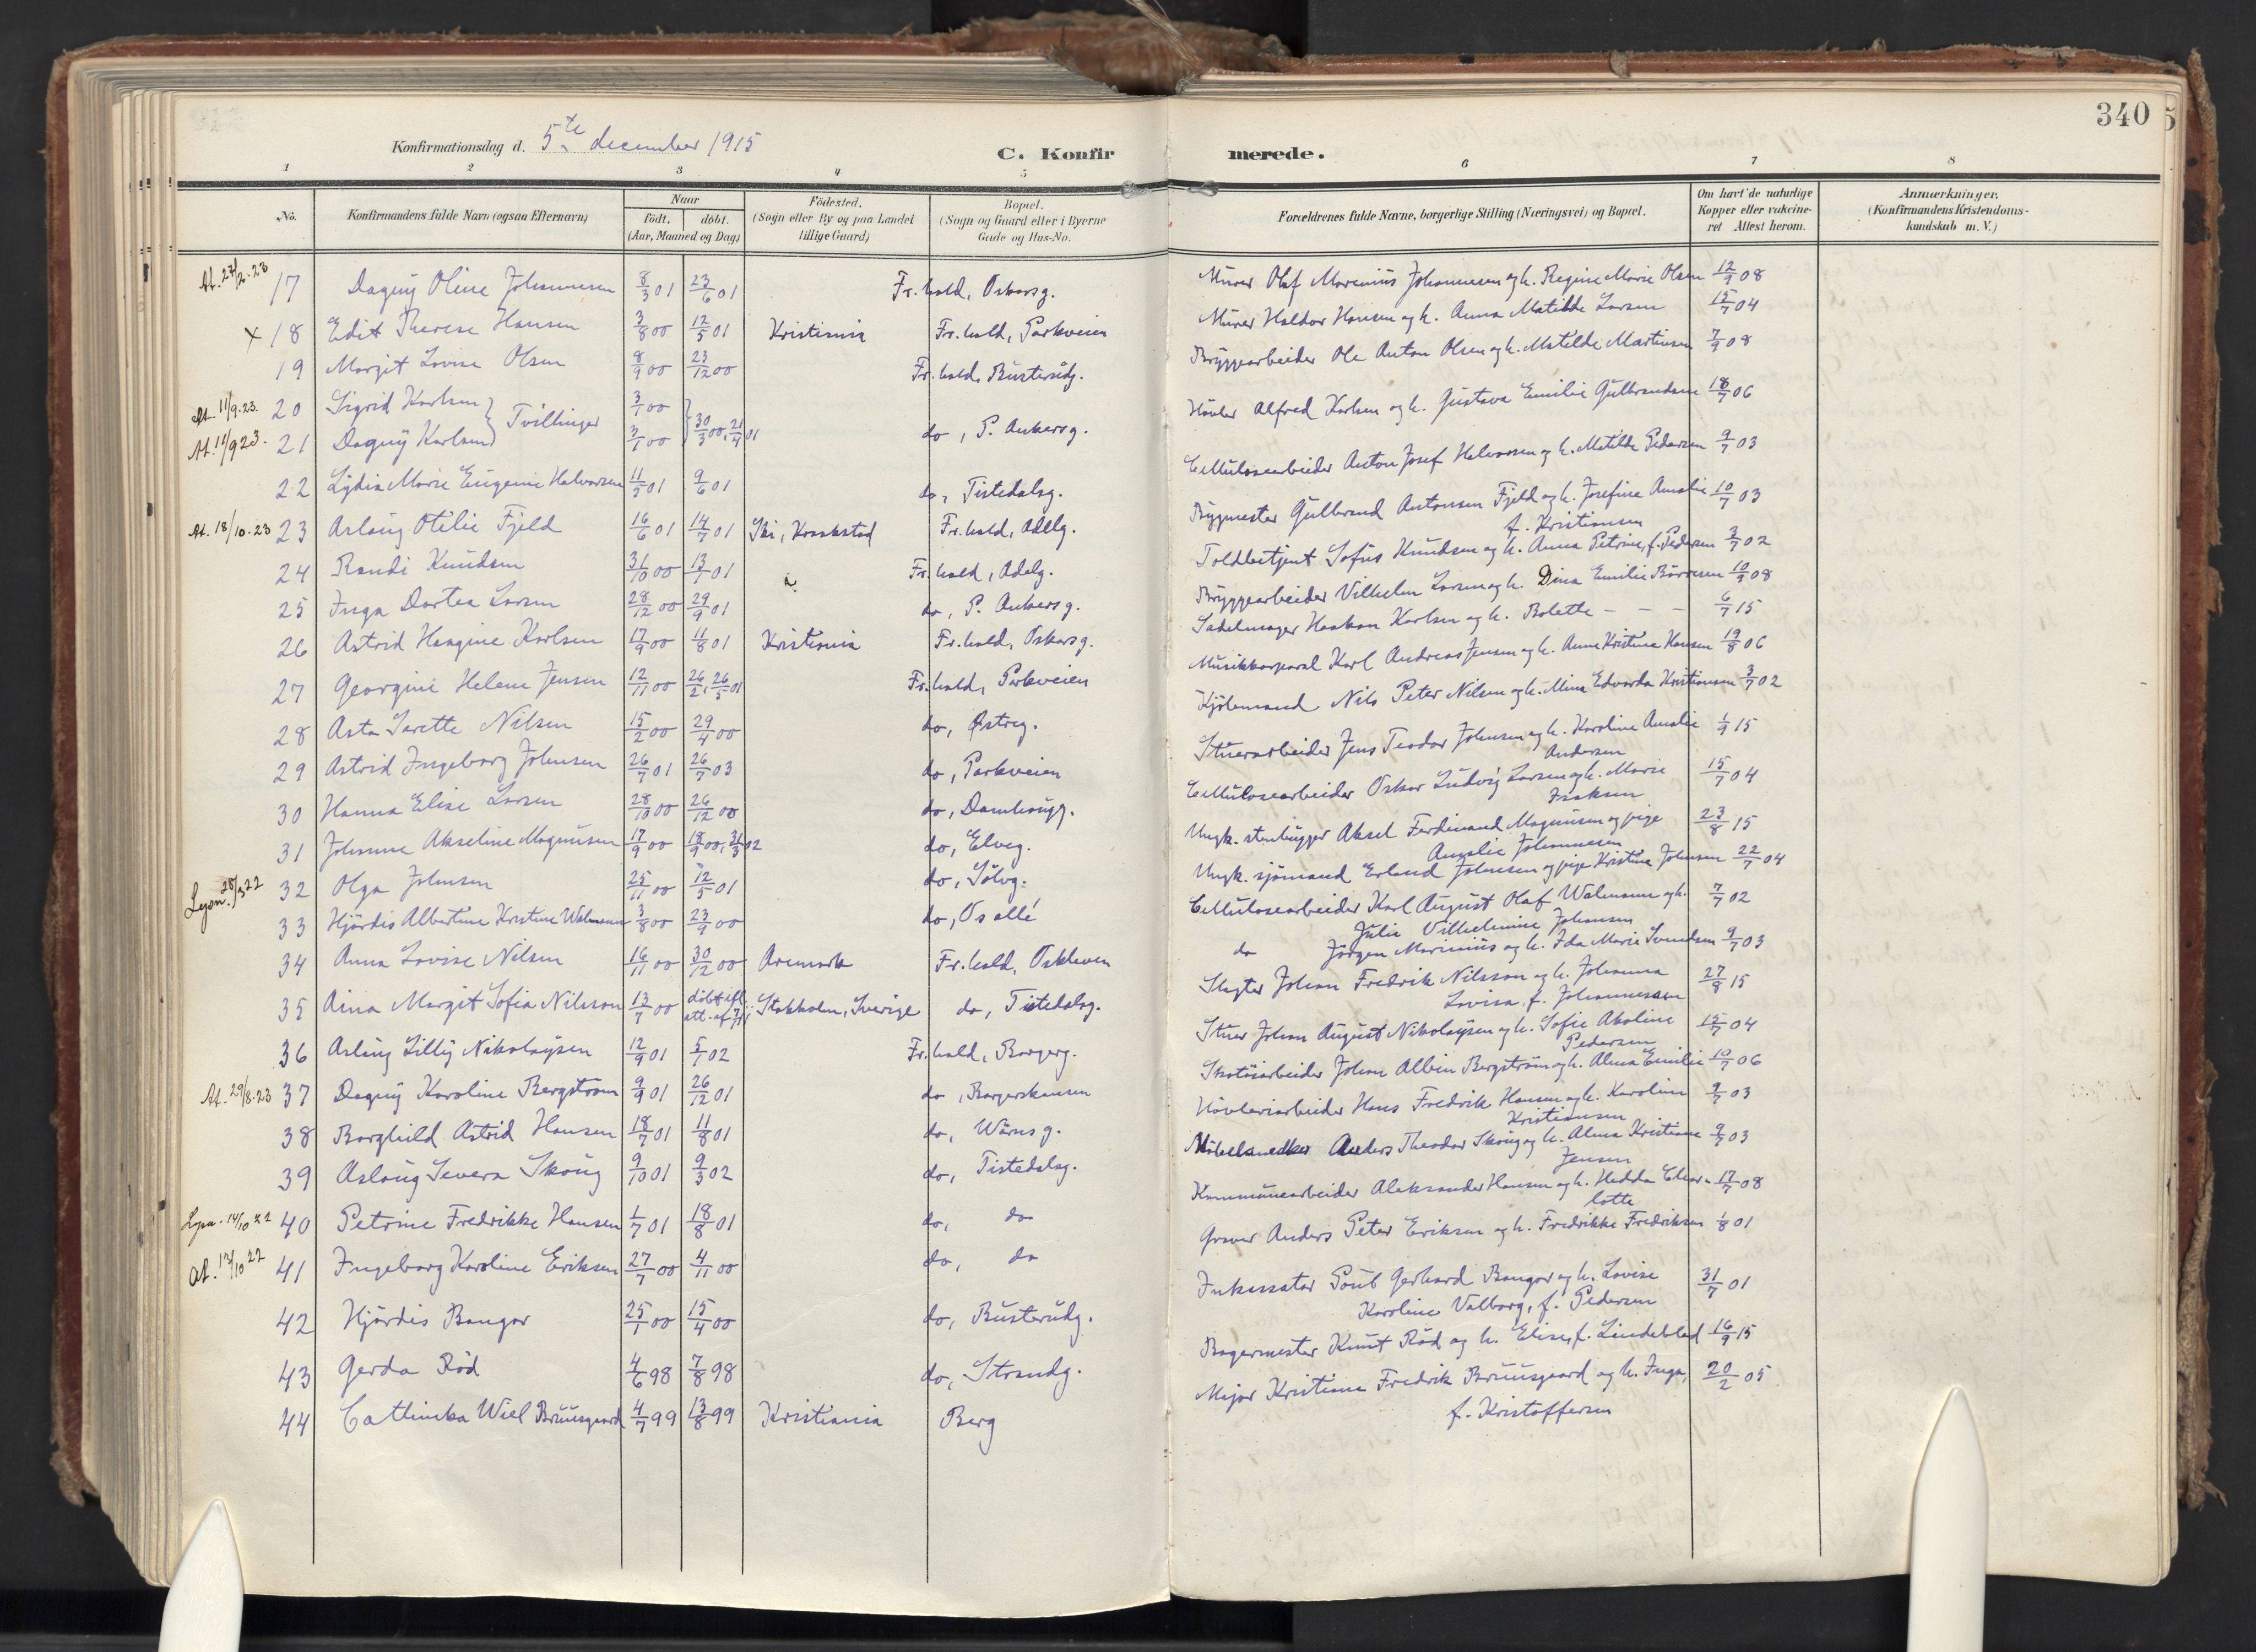 340
Konfirmationsdag d. 5te december 1915
C. Konfirmerede.
1 2 3 4 5 6 7 8
No. Konfirmandens fulde Navn (ogsaa Efternavn) Naar födt. döbt. (Aar, Maaned og Dag) Födested. (Sogn eller By og paa Landet tillige Gaard) Bopæl. (Sogn og Gaard eller i Byerne Gade og Hus-No. Forældrenes fulde Navne, borgerlige Stilling (Næringsvei) og Bopæl. Om havt de naturlige Kopper eller vakcineret Attest herom. Anmærkninger. (Konfirmandens Kristendomskundskab m. V.)
At. 27/2.23 17 Dagny Oline Johannesen 8/3 01 23/6 01 Fr.hald, Oskarsg. Murer Olaf Marenius Johannesen og h. Regine Marie Olsen 12/9 08
x 18 Edit Therese Hansen 3/8 00 12/5 01 Kristiania Fr.hald, Parkveien Murer Haldor Hansen og h. Anna Matilde Larsen 15/7 04
19 Margit Lovise Olsen 8/9 00 23/12 00 Fr.hald, Busterudg. Bryggearbeider Ole Anton Olsen og h. Matilde Martinsen 7/9 08
At. 11/9.23. 20 Sigrid Karlsen } Tvillinger 3/1 00 Høvler Alfred Karlsen og h. Gustava Emilie Gulbrandsen 18/7 06
At. 11/9 23. 21 Dagny Karlsen 3/1 00 } 30/3 00, 21/4 01 do, P. Ankersg.
22 Lydia Marie Eugenie Halvorsen 11/5 01 9/6 01 do, Tistedalsg. Cellulosearbeider Anton Josef Halvorsen og h. Matilde Pedersen 9/7 03
At. 18/10.23 23 Aslaug Otilie Fjeld 16/6 01 14/7 01 Ski, Kraakstad Fr.hald, Adelg. Bygmester Gulbrand Antonsen Fjeld og h. Josefine Amalie 10/7 03
f. Kristiansen
24 Randi Knudsen 31/10 00 13/1 01 Fr.hald, Adelg. Toldbetjent Sofus Knudsen og h. Anna Petrine, f. Pedersen 3/7 02
25 Inga Dortea Larsen 28/12 00 29/9 01 do, P. Ankersg. Bryggearbeider Vilhelm Larsen og h. Dina Emilie Børresen 10/9 08
26 Astrid Haagine Karlsen 17/9 00 11/8 01 Kristiania Fr.hald, Oskarsg. Sadelmager Haakon Karlsen og h. Bolette - - - 6/7 15
27 Georgine Helene Jensen 12/11 00 26/2, 26/5 01 Fr.hald, Parkveien Musikkorporal Karl Andreas Jensen og h. Anne Kristine Hansen 19/8 06
28 Asta Sarette Nilsen 15/2 00 29/4 00 do, Østreg. Kjöbmand Nils Peter Nilsen og h. Mina Edvarda Kristiansen 3/7 02
29 Astrid Ingeborg Johnsen 26/7 01 26/7 03 do, Parkveien Stuerarbeider Jens Teodor Johnsen og h. Karoline Amalie 1/9 15
Andersen
30 Hanna Elise Larsen 28/10 00 26/12 00 do, Damhaugg. Cellulosearbeider Oskar Ludvig Larsen og h. Marie 15/7 04
Isaksen
31 Johanne Akseline Magnusen 17/9 00 18/9 00, 31/3 02 do, Elveg. Ungk. stenhugger Aksel Ferdinand Magnusen og pige 23/8 15
Amalie Johannesen
Lysn. 28/3 22 32 Olga Johnsen 25/11 00 12/5 01 do, Sølvg. Ungk. sjömand Erland Johnsen og pige Kristine Johnsen 22/7 04
33 Hjördis Albertine Kristine Walmann 3/8 00 23/9 00 do, Os allé Cellulosearbeider Karl August Olaf Walmann og h. 7/7 02
Julie Vilhelmine Johansen
34 Anna Lovise Nilsen 16/11 00 30/12 00 Aremark Fr.hald, Oskleven do Jörgen Marinius og h. Ida Marie Svendsen 9/7 03
35 Aina Margit Sofia Nilsson 13/7 00 döbt ifl. att. af 7/11 Stokholm, Sverige do, Tistedalsg. Slagter Johan Fredrik Nilsson og h. Johanna 27/8 15
Lovisa, f. Johannessen
36 Aslaug Lilly Nikolaysen 12/9 01 5/1 02 Fr.hald, Borgerg. Stuer Johan August Nikolaysen og h. Sofie Akoline 15/7 04
Pedersen
At. 29/8.23 37 Dagny Karoline Bergström 9/9 01 26/12 01 do, Borgerskansen Skotöiarbeider Johan Albin Bergström og h. Alma Emilie 10/7 06
38 Borghild Astrid Hansen 18/7 01 11/8 01 do, Wärnsg. Høvleriarbeider Hans Fredrik Hansen og h. Karoline 9/7 03
Kristiansen
39 Aslaug Severa Skoug 9/10 01 9/3 02 do, Tistedalsg. Möbelsnedker Anders Theodor Skoug og h. Alma Kristiane 9/7 03
Jensen
Lysn. 14/10 22 40 Petrine Fredrikke Hansen 1/7 01 18/8 01 do, do Kommunearbeider Aleksander Hansen og h. Hedda Char- 17/7 08
lotte
At. 13/10 22 41 Ingeborg Karoline Eriksen 27/7 00 4/11 00 do, do Graver Anders Peter Eriksen og h. Fredrikke Fredriksen 1/8 01
42 Hjördis Bangor 25/1 00 15/4 00 do, Busterudg. Inkassator Poul Gerhard Bangor og h. Lovise 31/7 01
Karoline Valborg, f. Pedersen
43 Gerda Röd 4/6 98 7/8 98 do, Strandg. Bagermester Knut Röd og h. Elise, f. Lindeblad 16/9 15
44 Cathinka Wiel Bruusgaard 4/7 99 13/8 99 Kristiania Berg Major Kristian Fredrik Bruusgaard og h. Inga, 20/2 05
f. Kristoffersen